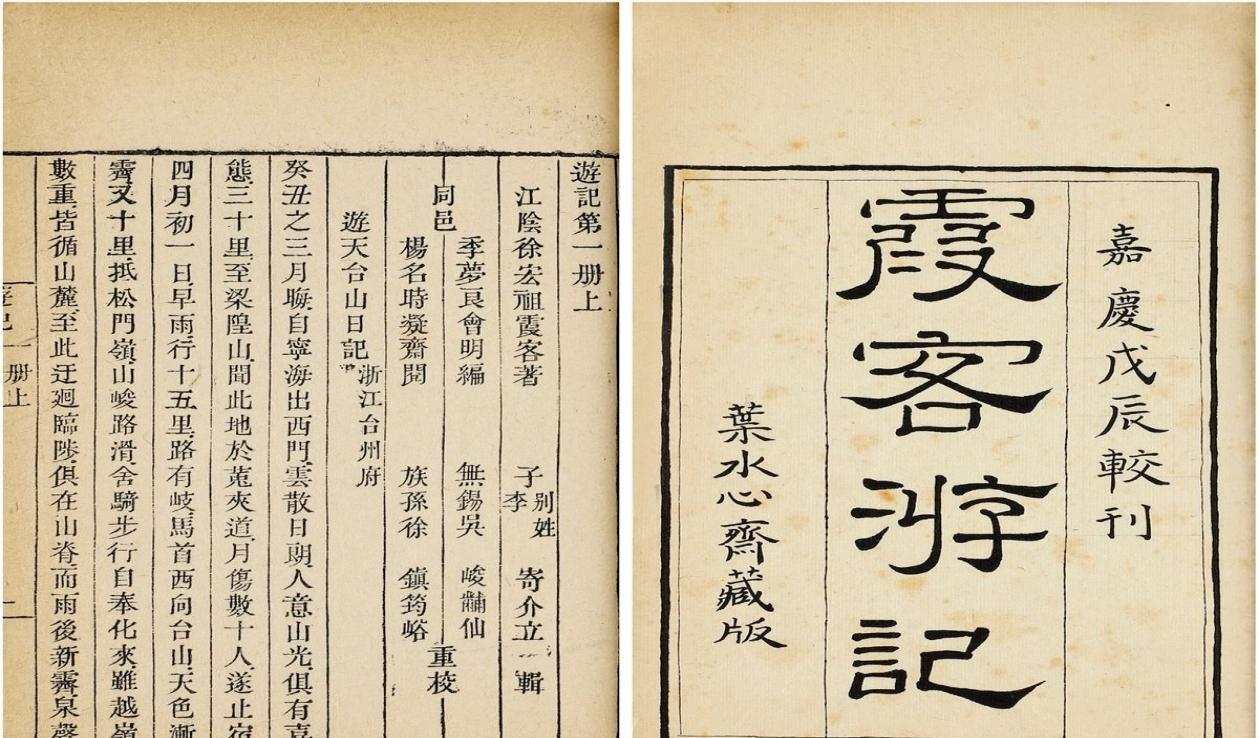 嘉慶戊辰較刊
霞客游記
葉水心齋藏版
遊記第一册上
江陰徐宏祖霞客著 子李别姓寄介立輯
同邑
季夢良會明編 無錫吳峻黼仙
楊名時凝齋閱 族孫徐鎮筠峪
重校
遊天台山日記 浙江台州府
癸丑之三月晦自寧海出西門雲散日朗人意山光俱有喜
態三十里至梁隍山聞此地於菟夾道月傷數十人遂止宿
四月初一日早雨行十五里路有岐馬首西向台山天色漸
霽又十里抵松門嶺山峻路滑舍騎步行自奉化來雖越嶺
數重皆循山麓至此迂廻臨陟俱在山脊而雨後新霽泉聲
册上